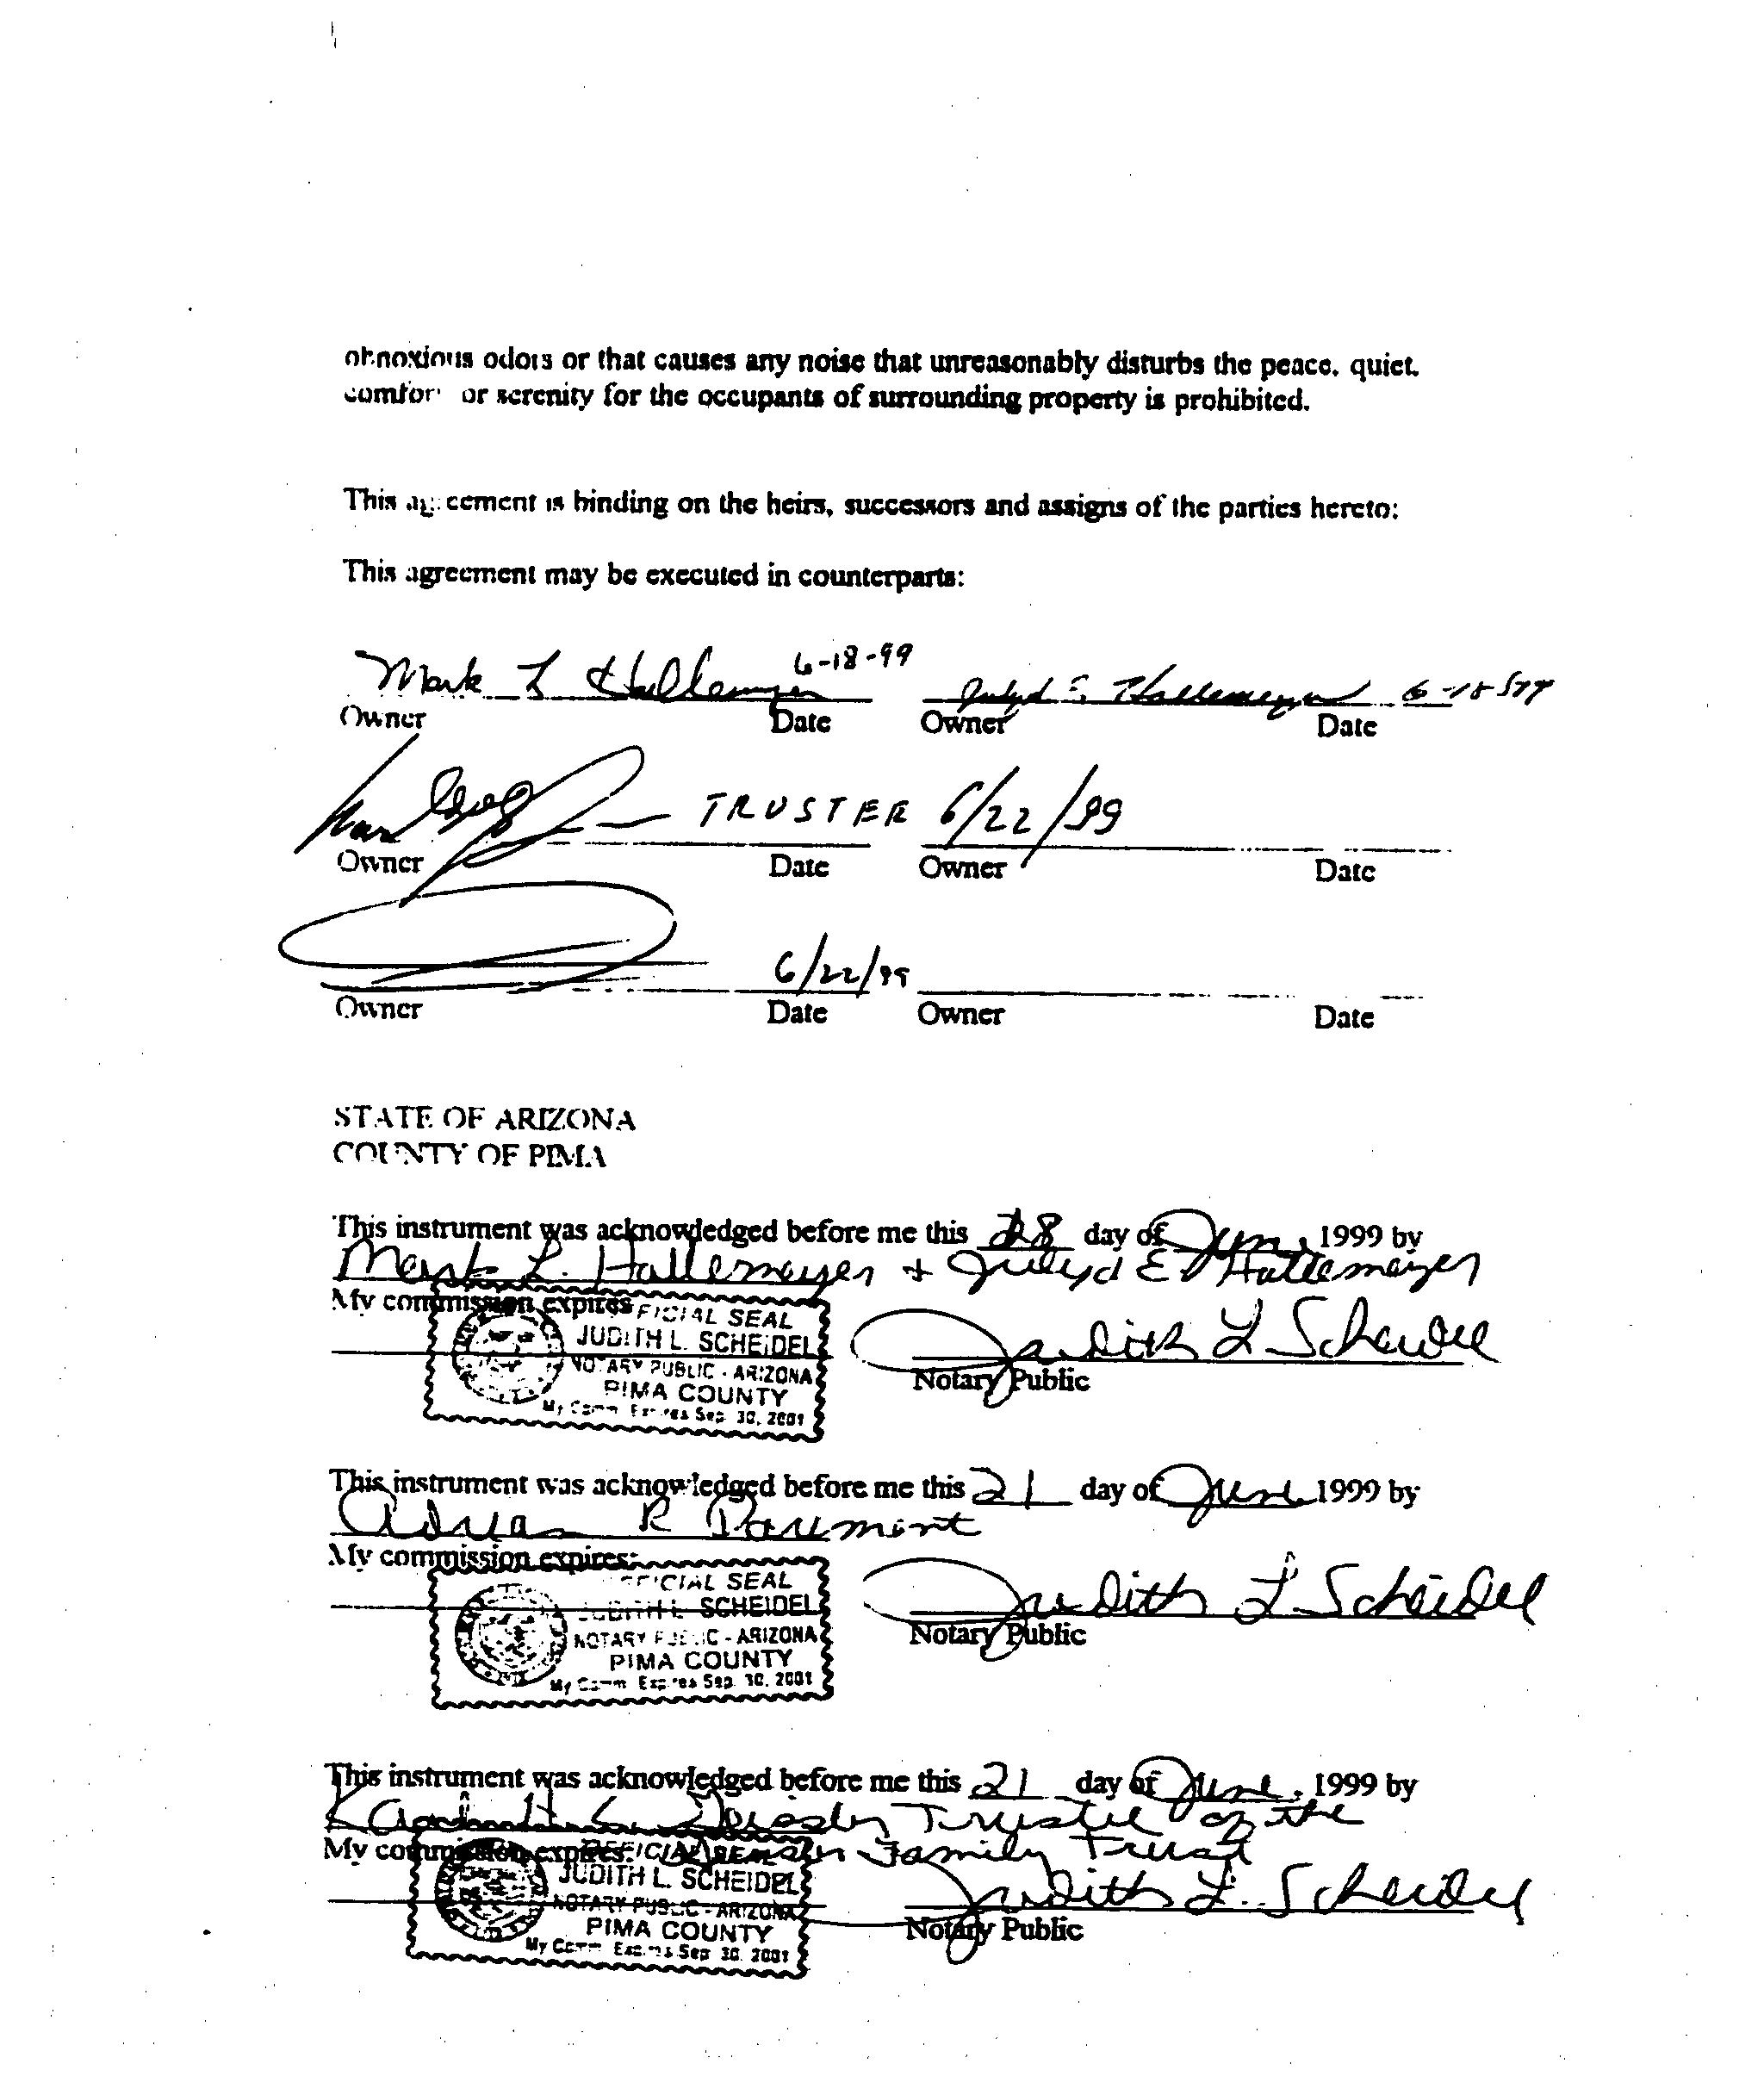 obnoxious odors or that causes any noise that unreasonably disturbs the peace, quiet,
comfor or serenity for the occupants of surrounding property is prohibited.
This agreement is binding on the heirs, successors and assigns of the parties hereto:
This agreement may be executed in counterparts:
Mark L Hallemeyer 6-18-99 E. Hallemeyer
Owner Date Owner Date
TRUSTEE 6/22/99
Owner Date Owner Date
6/22/99
Owner Date Owner Date
STATE OF ARIZONA
COUNTY OF PIMA
This instrument was acknowledged before me this 18 day of June, 1999 by
Mark L. Hallemeyer + E Hallemeyer
My commission expires
OFFICIAL SEAL
JUDITH L. SCHEIDEL
NOTARY PUBLIC - ARIZONA
PIMA COUNTY
My Comm. Expires Sep. 30, 2001
Judith L Scheidel
Notary Public
This instrument was acknowledged before me this 21 day of June 1999 by
R
My commission expires:
OFFICIAL SEAL
JUDITH L. SCHEIDEL
NOTARY PUBLIC - ARIZONA
PIMA COUNTY
My Comm. Expires Sep. 30, 2001
Judith L Scheidel
Notary Public
This instrument was acknowledged before me this 21 day of June, 1999 by
Trustee of the
Family Trust
My commission expires:
OFFICIAL SEAL
JUDITH L. SCHEIDEL
NOTARY PUBLIC - ARIZONA
PIMA COUNTY
My Comm. Expires Sep. 30, 2001
Judith L. Scheidel
Notary Public